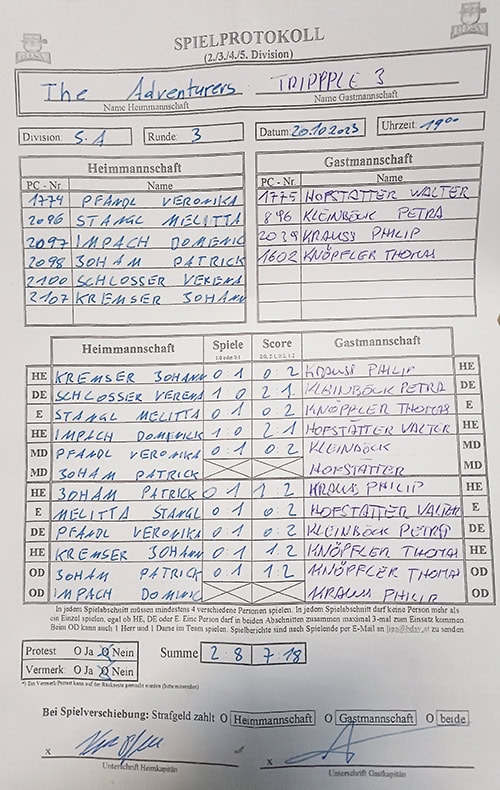 SPIELPROTOKOLL
(2./3./4./5. Division)
The Adventurers TRIPPPLE 3
Name Heimmannschaft Name Gastmannschaft
Division: 5.1 Runde: 3 Datum: 20.10.2023 Uhrzeit: 19⁰⁰
Heimmannschaft Gastmannschaft
PC - Nr. Name PC - Nr. Name
1774 PFANDL VERONIKA 1775 HOFSTATTER WALTER
2096 STANGL MELITTA 896 KLEINBÖCK PETRA
2097 IMPACH DOMENIC 2039 KRAUSS PHILIP
2098 JOHAM PATRICK 1602 KNÖPFLER THOMAS
2100 SCHLOSSER VERENA
2107 KREMSER JOHANN
Heimmannschaft Spiele Score Gastmannschaft
1:0 oder 0:1 2:0, 2:1, 0:2, 1:2
HE KREMSER JOHANN 0:1 0:2 KRAUSS PHILIP HE
DE SCHLOSSER VERENA 1:0 2:1 KLEINBÖCK PETRA DE
E STANGL MELITTA 0:1 0:2 KNÖPFLER THOMAS E
HE IMPACH DOMINICK 1:0 2:1 HOFSTATTER WALTER HE
MD PFANDL VERONIKA 0:1 0:2 KLEINBÖCK MD
MD JOHAM PATRICK HOFSTATTER MD
HE JOHAM PATRICK 0:1 1:2 KRAUSS PHILIP HE
E MELITTA STANGL 0:1 0:2 HOFSTATTER WALTER E
DE PFANDL VERONIKA 0:1 0:2 KLEINBÖCK PETRA DE
HE KREMSER JOHANN 0:1 1:2 KNÖPFLER THOMAS HE
OD JOHAM PATRICK 0:1 1:2 KNÖPFLER THOMAS OD
OD IMPACH DOMINIC KRAUSS PHILIP OD
In jedem Spielabschnitt müssen mindestens 4 verschiedene Personen spielen. In jedem Spielabschnitt darf keine Person mehr als
ein Einzel spielen, egal ob HE, DE oder E. Eine Person darf in beiden Abschnitten zusammen maximal 3-mal zum Einsatz kommen.
Beim OD kann auch 1 Herr und 1 Dame im Team spielen. Spielberichte sind nach Spielende per E-Mail an liga@bdsv.at zu senden.
Protest O Ja O Nein Summe 2:8 7:18
Vermerk: O Ja O Nein
*) Ein Vermerk/Protest kann auf der Rückseite gemacht werden (bitte ankreuzen)
Bei Spielverschiebung: Strafgeld zahlt O Heimmannschaft O Gastmannschaft O beide
x x
Unterschrift Heimkapitän Unterschrift Gastkapitän